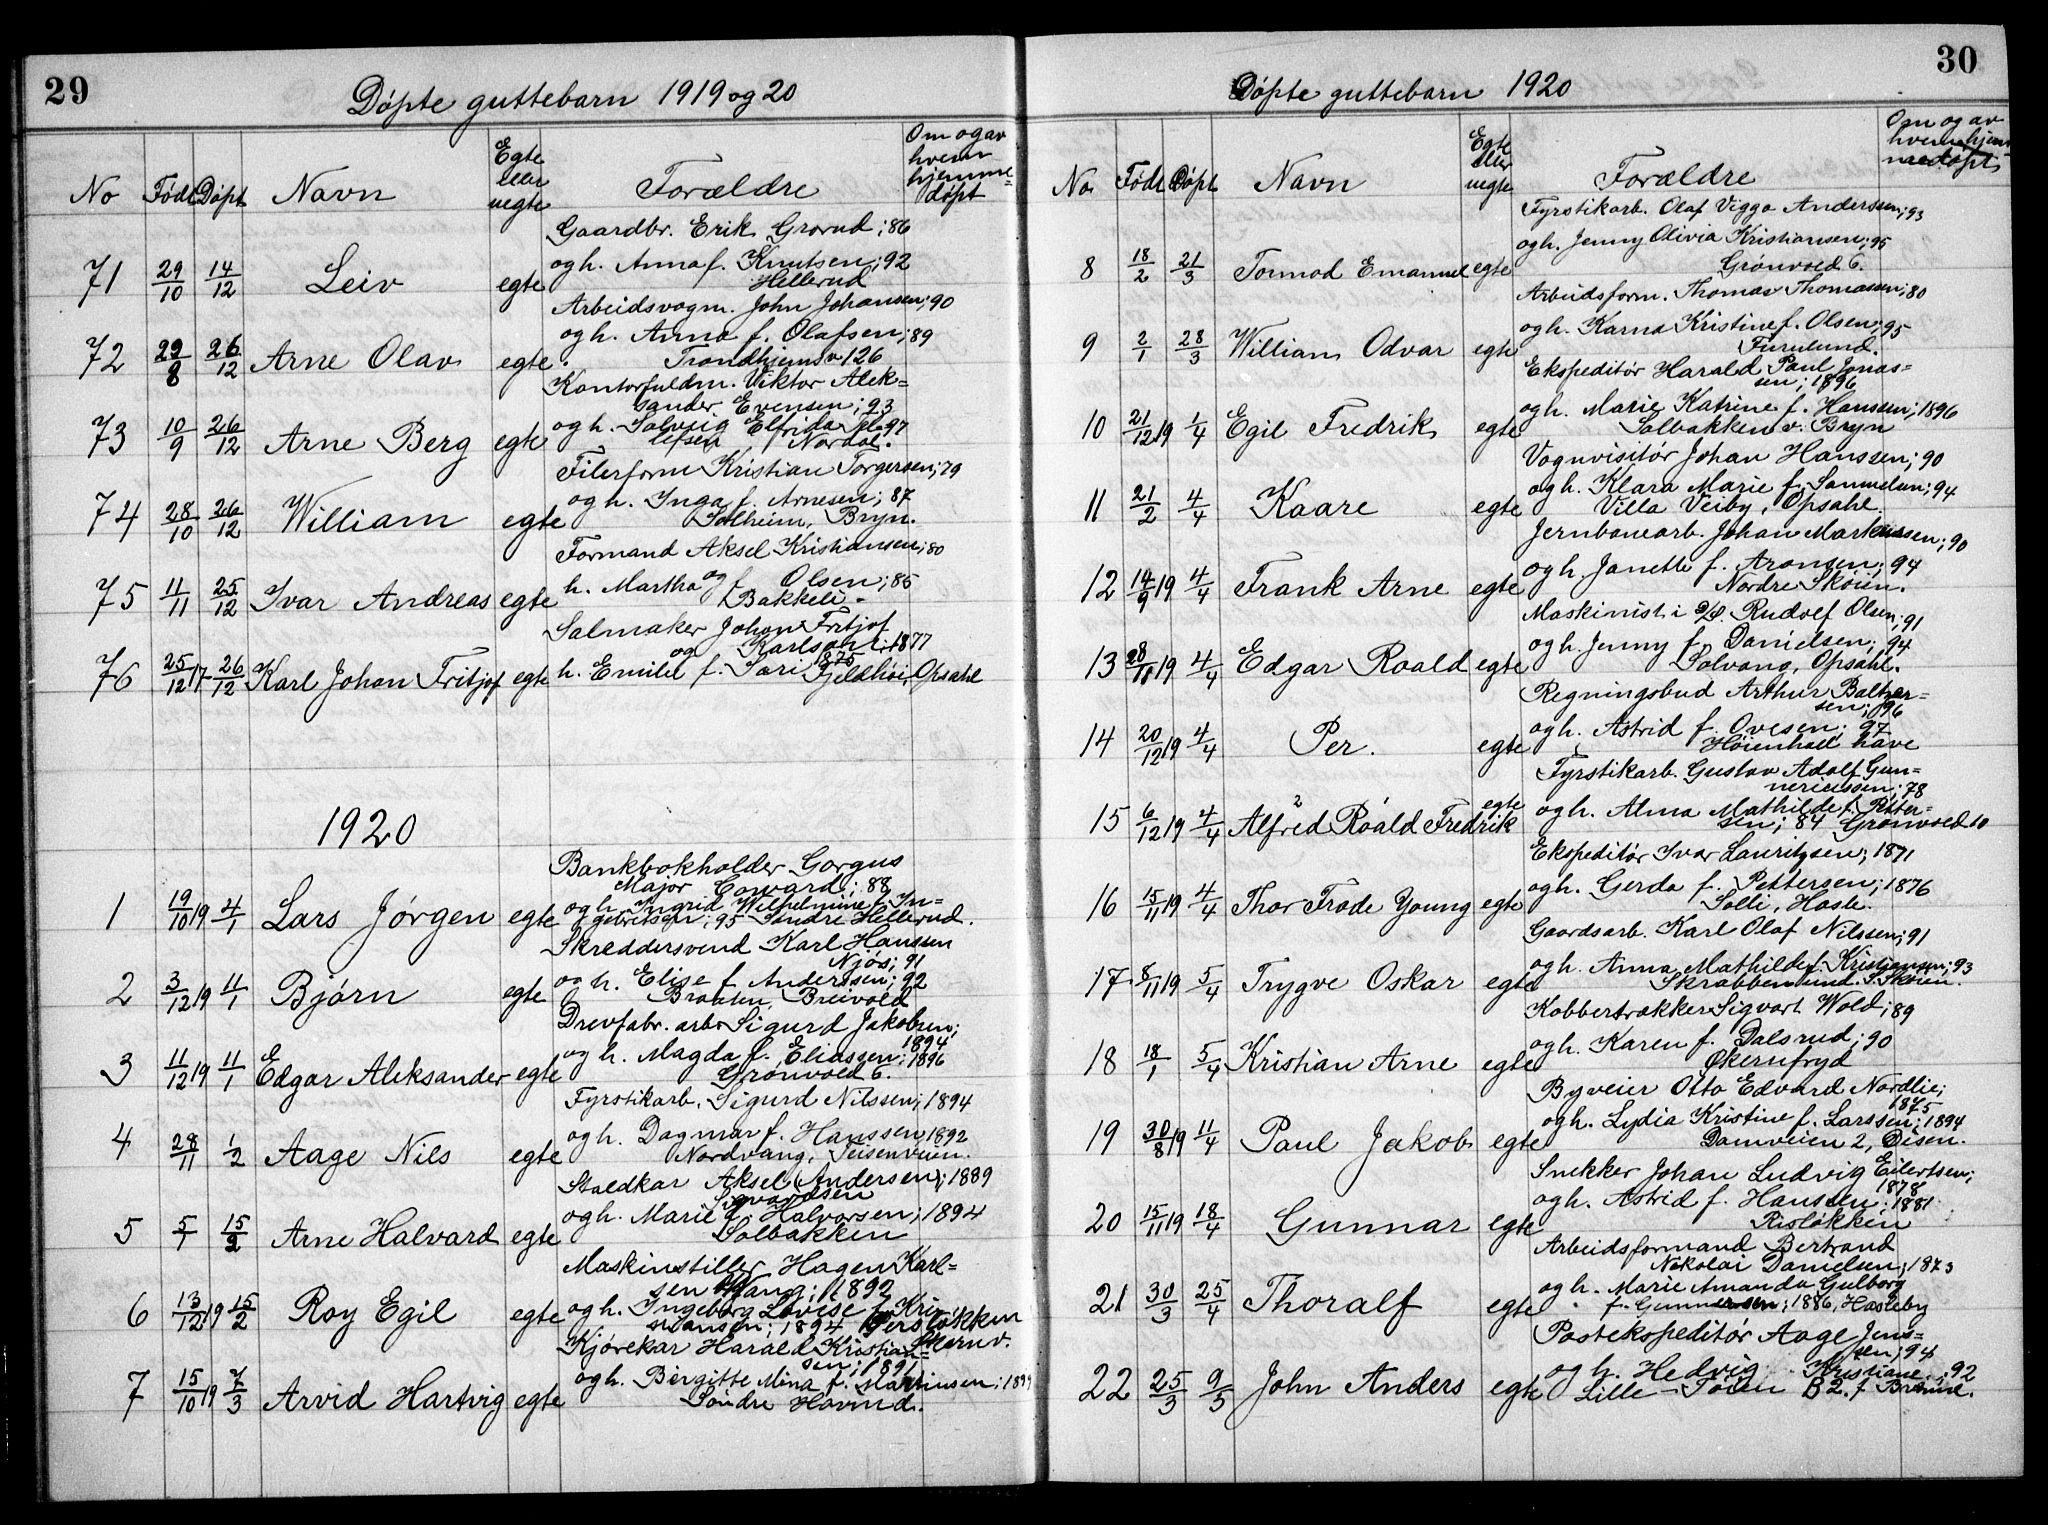 29
Døpte guttebarn 1919 og 20
No Født Døpt Navn Egte eller uegte Forældre Om og av hvem hjemme=døpt
Gaardbr. Erik Grorud; 86
71 29/10 14/12 Leiv egte og h. Anna f. Knutsen; 92
Hellerud
Arbeidsvogm. John Johansen; 90
og h. Anna f. Olafsen; 89
72 29/8 26/12 Arne Olav egte Trondhjemsv 126
Kontorfuldm. Viktor Alek=
sander Evensen; 93
73 10/9 26/12 Arne Berg egte og h. Solveig Elfrida 97
Nordal.
Filerform Kristian Torgersen; 79
og h. Inga f. Arnesen; 87
74 28/10 26/12 William egte Solheim, Bryn.
Formand Aksel Kristiansen; 80
og
75 11/11 25/12 Ivar Andreas egte h. Martha f. Olsen; 85
Bakkeli
Salmaker Johan Fritjof
Karlson; 1877
og
76 25/12 17 26/12 Karl Johan Fritjof egte h. Emilie f. Sari 1875 Fjeldhøi, Opsahl
1920
Bankbokholder Gorgus
Major Coward; 88
og h. Ingrid Wilhelmine f. In=
1 19/10 19 4/1 Lars Jørgen egte gebrigtsen; 95 Søndre Hellerud.
Skreddersvend Karl Hanssen
Njøs; 91
og h. Elise f. Anderssen; 92
2 3/12 19 11/1 Bjørn egte Braaten, Breivold
Drevfabr. arb. Sigurd Jakobsen;
1894
og h. Magda f. Eliassen; 1896
3 11/12 19 11/1 Edgar Aleksander egte Grønvold 6.
Fyrstikarb. Sigurd Nilssen; 1894
og h. Dagmar f. Hanssen 1892
4 28/11 1/2 Aage Nils egte Nordvang, Teisenveien.
Staldkar Aksel (Andersen); 1889
Sigvardsen
og h. Marie f. Halvorsen; 1894
5 5/1 15/2 Arne Halvard egte Solbakken
Maskinstiller Hagen Karl=
sen Wang; 1892
og h. Ingeborg Lovise f. Kri
6 13/12 19 15/2 Roy Egil egte stiansen; 1894 Persløkken
Økernv.
Kjørekar Harald Kristian=
sen; 1891
og h. Birgitte Mina f. Martinsen; 1899
7 15/10 19 7/3 Arvid Hartvig egte Søndre Hovind.
30
Døpte guttebarn 1920
No Født Døpt Navn Egte eller uegte Forældre Om og av hvem hjem-medøpt
Fyrstikarb. Olaf Viggo Anderssen; 93
og h. Jenny Olivia Kristiansen; 95
8 18/2 21/3 Tormod Emanuel egte Grønvold 6.
Arbeidsform. Thomas Thomassen; 80
og h. Karna Kristine f. Olsen; 95
9 2/1 28/3 William Odvar egte Furulund.
Ekspeditør Harald Paul Jonas=
sen; 1896
og h. Marie Katrine f. Hanssen; 1896
10 21/12 19 1/4 Egil Fredrik egte Solbakken v. Bryn
Vognvisitør Johan Hanssen; 90
og h. Klara Marie f. Samuelsen; 94
11 21/2 4/4 Kaare egte Villa Veiby, Opsahl.
Jernbanearb. Johan Markussen; 90
og h. Janette f. Aronsen; 94
12 14/9 19 4/4 Frank Arne egte Nordre Skøien.
Maskinist i Rudolf Olsen; 91
og h. Jenny f. Danielsen; 94
13 28/11 19 4/4 Edgar Roald egte Solvang, Opsahl.
Regningsbud Arthur Baltzer=
sen; 96
og h. Astrid f. Ovesen; 97
14 20/12 19 4/4 Per. egte Høienhall have
Fyrstikarb. Gustav Adolf Gun=
neriussen; 78
2 egte og h. Alma Mathilde f. Petter=
15 6/12 19 4/4 Alfred Roald Fredrik sen; 84 Grønvold 10
Ekspeditør Ivar Lauritzsen; 1871
og h. Gerda f. Pettersen; 1876
16 15/11 19 4/4 Thor Frode Young egte Solli, Hasle.
Gaardsarb. Karl Olaf Nilssen; 91
og h. Anna Mathilde f. Kristiansen; 93
17 8/11 19 5/4 Trygve Oskar egte Skrabbenlund. S. Skøien.
Kobbertrækker Sigvart Wold; 89
og h. Karen f. Dalsrud; 90
18 18/1 5/4 Kristian Arne egte Økernfryd
Byveier Otto Edvard Nordlie;
1875
og h. Lydia Kristine f. Larssen; 1894
19 30/8 19 11/4 Paul Jakob egte Damveien 2, Disen.
Snekker Johan Ludvig Eilertsen;
1878
og h. Astrid f. Hanssen; 1881
20 15/11 19 18/4 Gunnar egte Risløkken
Arbeidsformand Bertrand
Nikolai Danielsen; 1873
og h. Marie Amanda Gulborg
21 30/3 25/4 Thoralf egte f. Gunnersen; 1886, Hasleby
Postekspeditør Aage Jens=
sen; 94
og h. Hedvig Kristiane; 92
22 25/3 9/5 John Anders egte Lille-Tøien B 2. f Bramne.